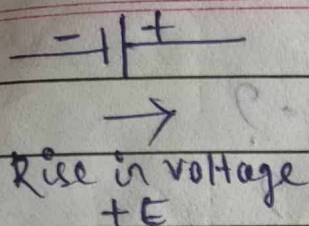 - +
Rise in voltage
+E